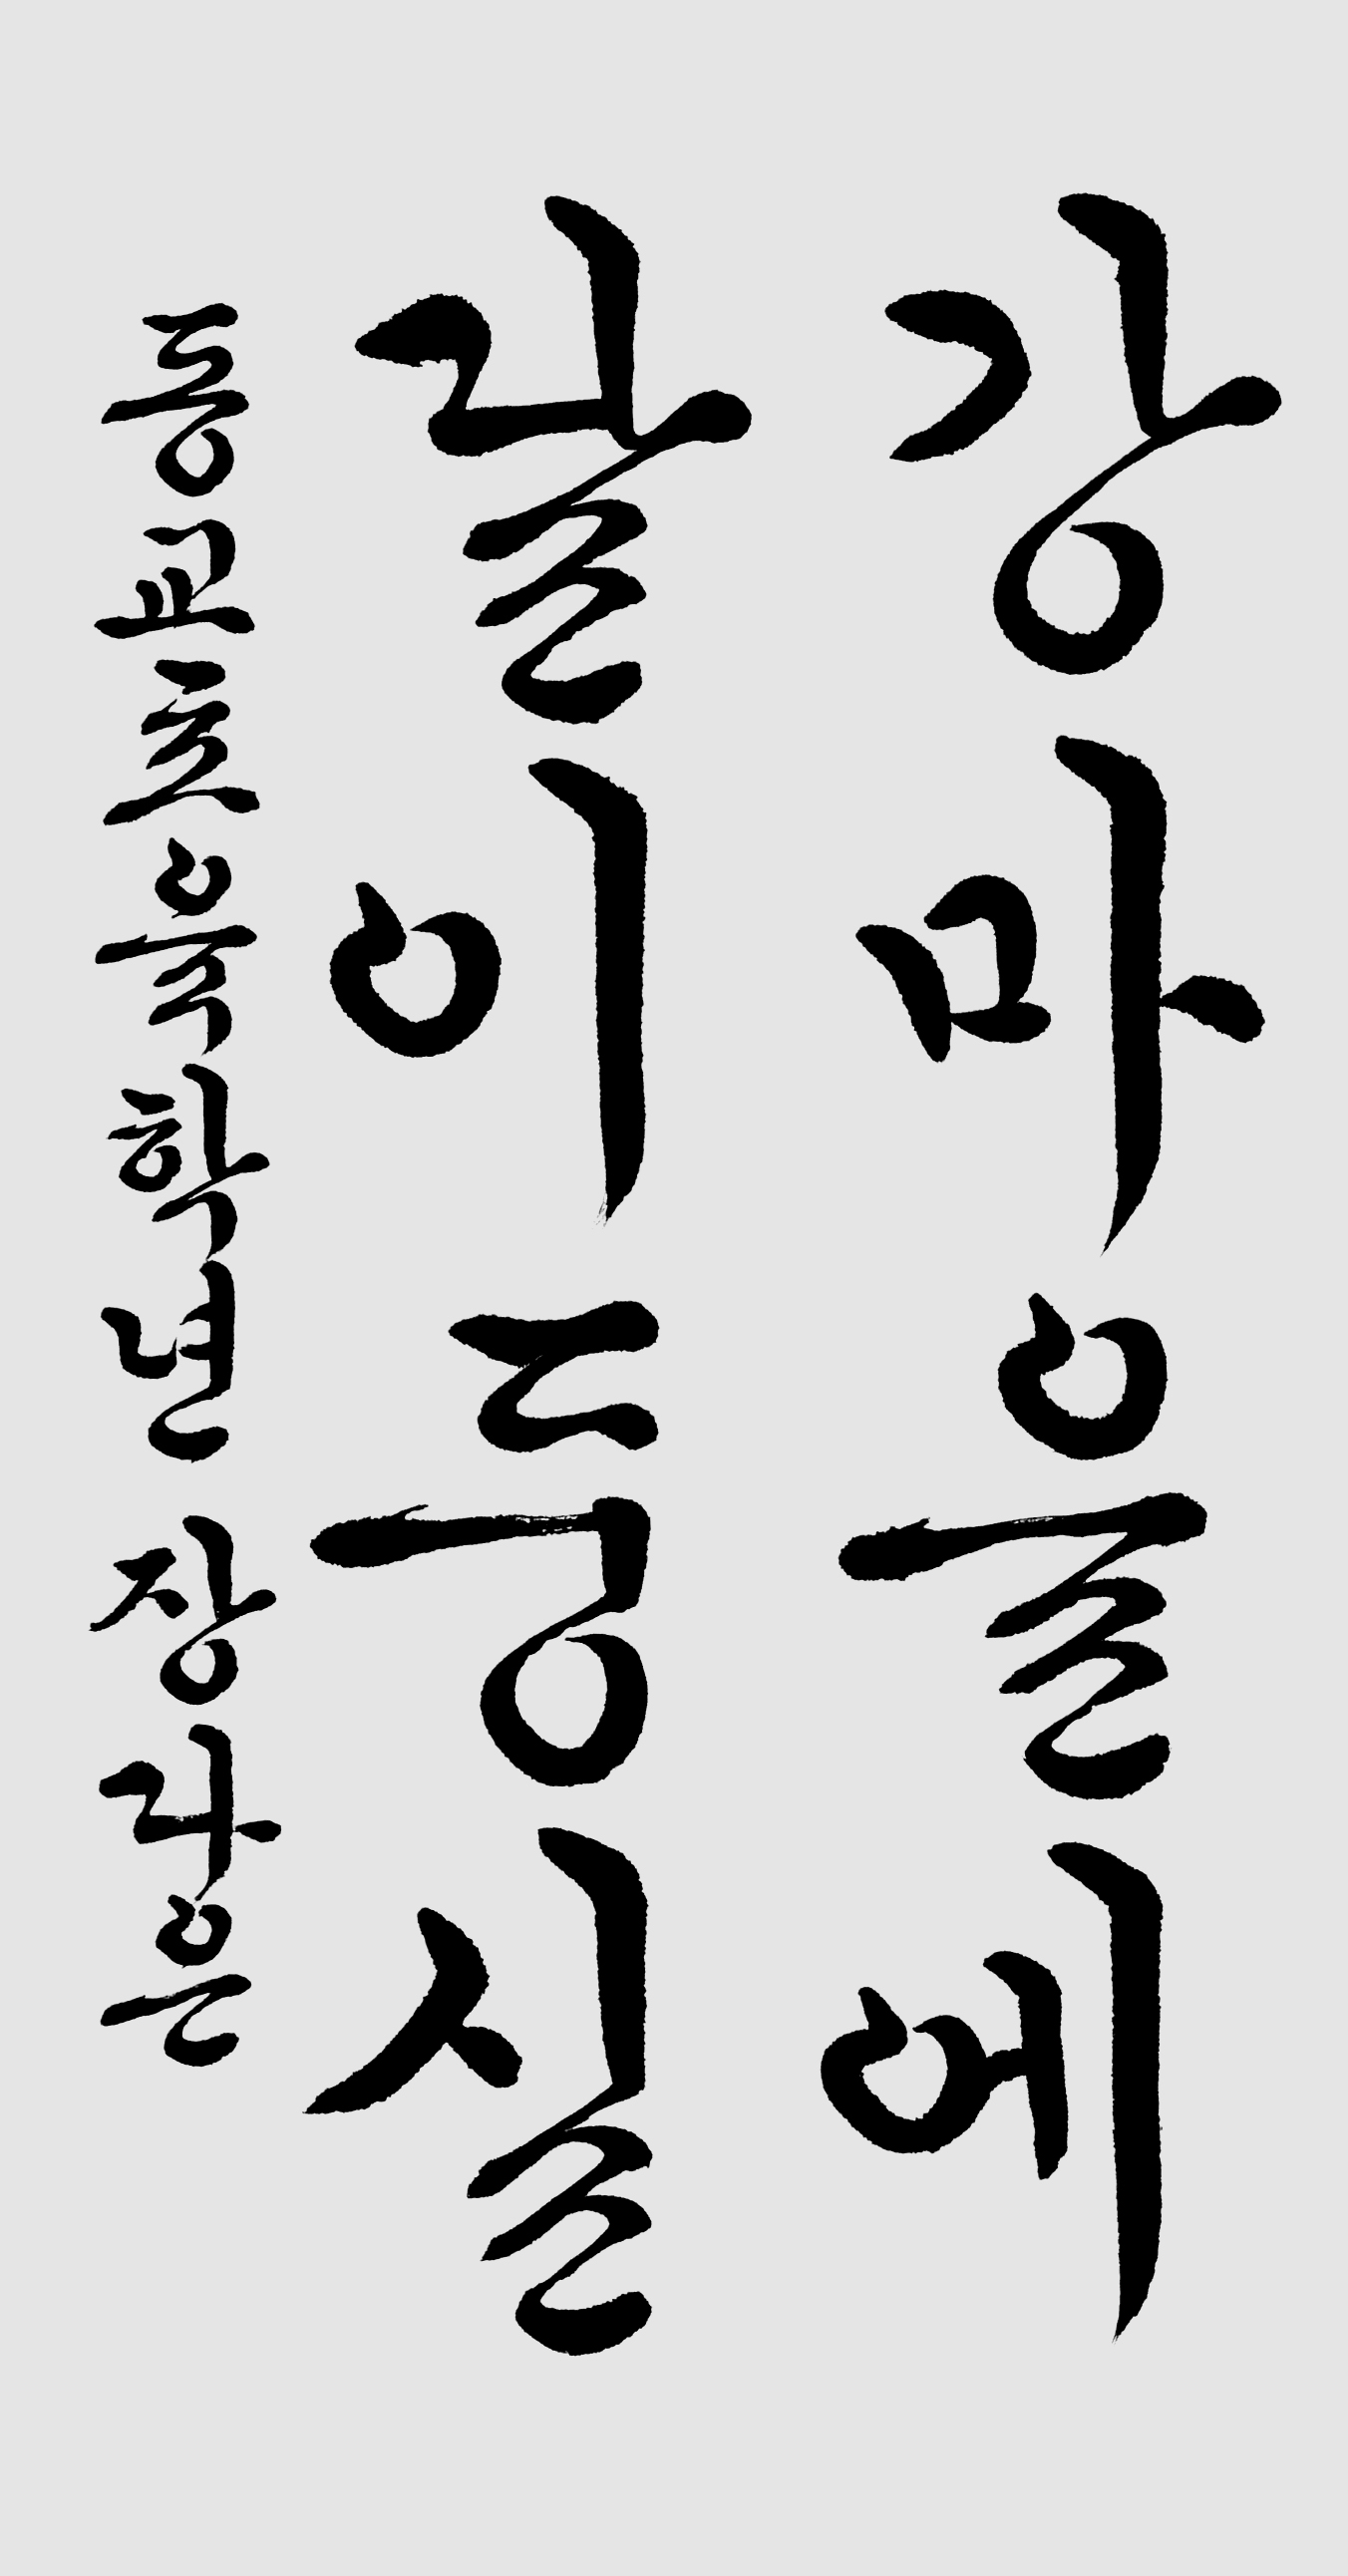 강마을에
달이둥실
동교초육학년 장다은